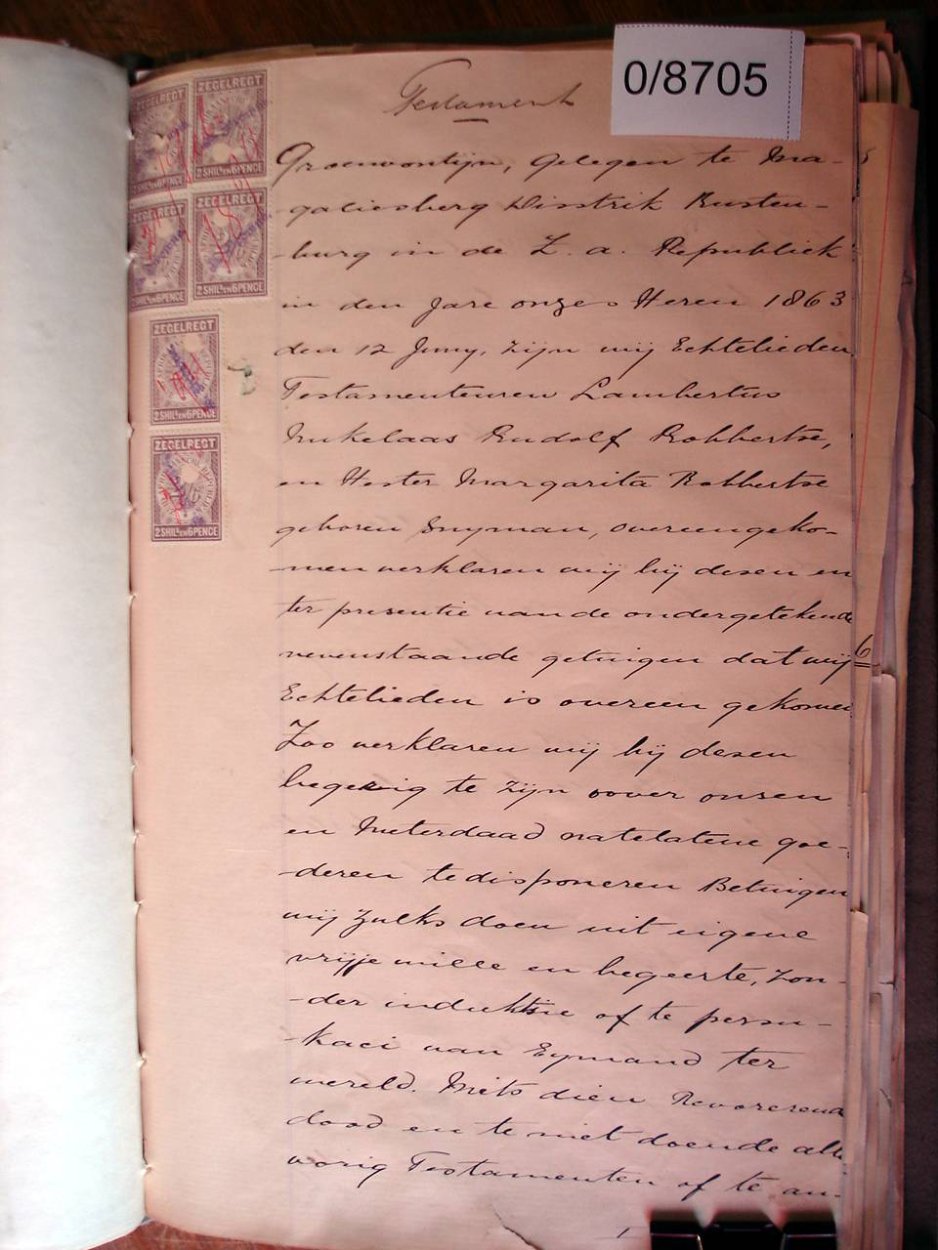 0/8705
Testament
ZEGELREGT
ZEGELREGT
2 SHILs EN 6 PENCE
2 SHILs EN 6 PENCE
2 SHILs EN 6 PENCE
2 SHILs EN 6 PENCE
ZEGELREGT
2 SHILs EN 6 PENCE
ZEGELREGT
2 SHILs EN 6 PENCE
Groenvontijn, gelegen te Ma-
galiesberg Disstrik Rusten-
-burg in de Z. a. Republiek
in den Jare onzes Heren 1863
den 12 Juny, zijn wij Echtelieden
Testamenteuren Lambertus
Nikelaas Rudolf Robbertse,
en Hester Margarita Robbertse
geboren Snyman, overeengeko-
-men verklaren wij bij desen en
ter presentie van de ondergetekende
nevenstaande getuigen dat wij
Echtelieden is overeen gekomen
Zoo verklaren wij bij desen
begerig te zijn oover onsen
en Meterdaad natelatene goe-
-deren te disponeren Betuigen
wij zulks doen uit eigene
vrijje wille en begeerte, zon-
-der induktsie of te persu-
-kaci van Eymand ter
wereld. Mits dien
dood en te niet doende alle
vorig Testamenten of te an-
6